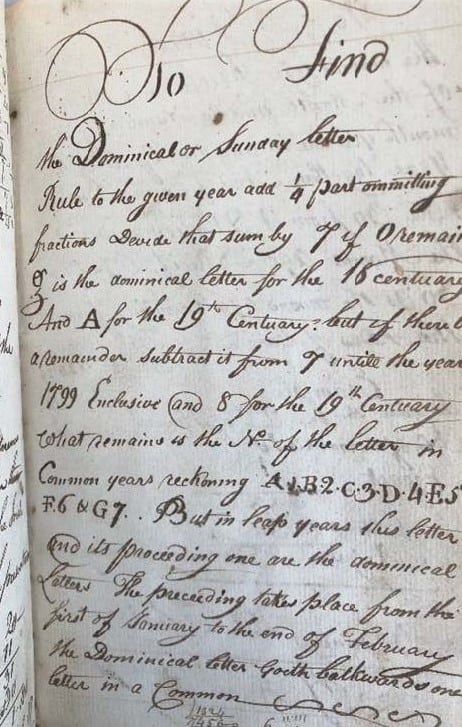 To Find
the Dominical or Sunday letter
Rule to the given year add 1/4 part ommitting
fractions Devide that sum by 7 if 0 remain
g is the dominical letter for the 18 centuary
And A for the 19th Centuary: but if there b
a remainder subtract it from 7 untile the year
1799 Enclusive and 8 for the 19th Centuary
what remains is the No. of the letter in
Common years reckoning A 1. B 2. C 3. D. 4. E 5
F. 6 & G 7.. But in leap years this letter
and its preceeding one are the dominical
Letters The preceeding takes place from the
first of January to the end of February
the Dominical letter Goeth balkwards one
letter in a Common